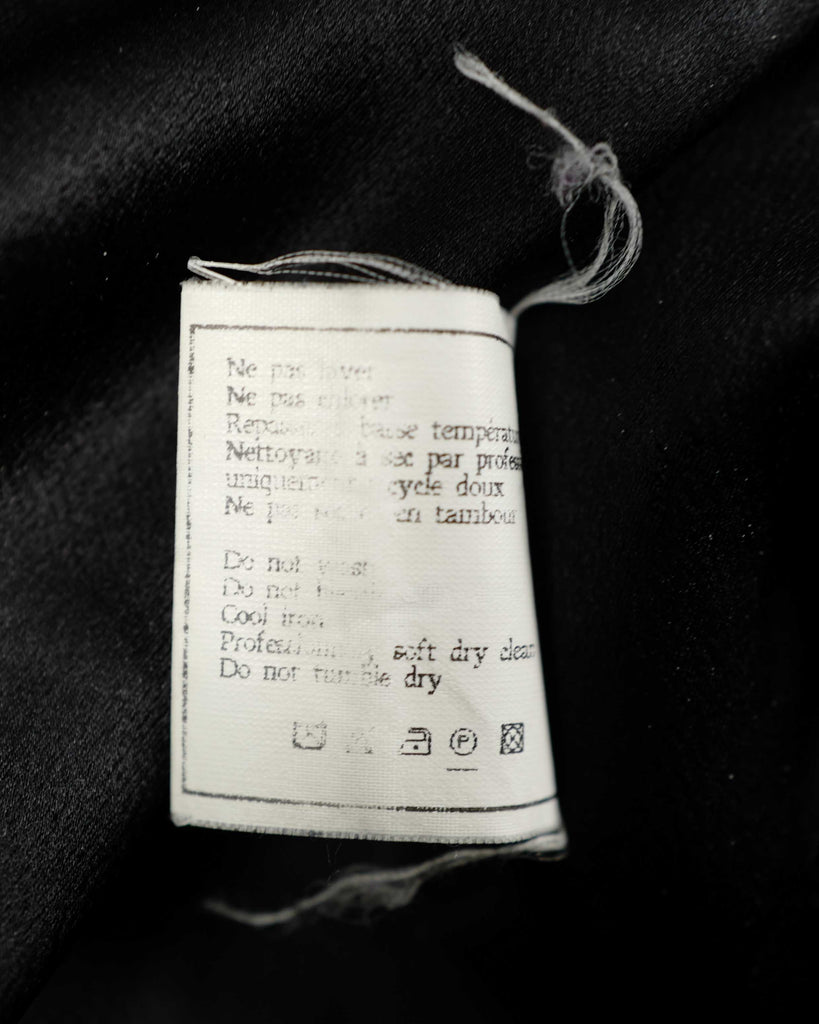 Ne pas laver
Ne pas
Repasser à basse températu
Nettoyage à sec par profes
uniquement cycle doux
Ne pas en tambour
Do not wash
Do not
Cool iron
Professional soft dry clean
Do not tumble dry
P